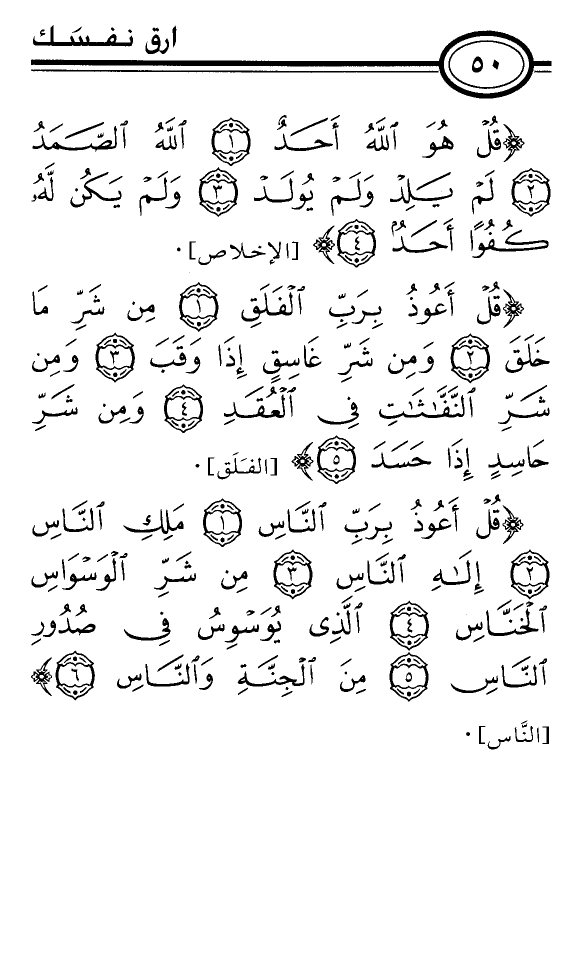 ارق نفسك
٥٠
﴿قُلْ هُوَ ٱللَّهُ أَحَدٌ ١ ٱللَّهُ ٱلصَّمَدُ
٢ لَمْ يَلِدْ وَلَمْ يُولَدْ ٣ وَلَمْ يَكُن لَّهُۥ
كُفُوًا أَحَدٌۢ ٤﴾ [الإخلاص].
﴿قُلْ أَعُوذُ بِرَبِّ ٱلْفَلَقِ ١ مِن شَرِّ مَا
خَلَقَ ٢ وَمِن شَرِّ غَاسِقٍ إِذَا وَقَبَ ٣ وَمِن
شَرِّ ٱلنَّفَّٰثَٰتِ فِى ٱلْعُقَدِ ٤ وَمِن شَرِّ
حَاسِدٍ إِذَا حَسَدَ ٥﴾ [الفَلَق].
﴿قُلْ أَعُوذُ بِرَبِّ ٱلنَّاسِ ١ مَلِكِ ٱلنَّاسِ
٢ إِلَٰهِ ٱلنَّاسِ ٣ مِن شَرِّ ٱلْوَسْوَاسِ
ٱلْخَنَّاسِ ٤ ٱلَّذِى يُوَسْوِسُ فِى صُدُورِ
ٱلنَّاسِ ٥ مِنَ ٱلْجِنَّةِ وَٱلنَّاسِ ٦﴾
[النَّاس].